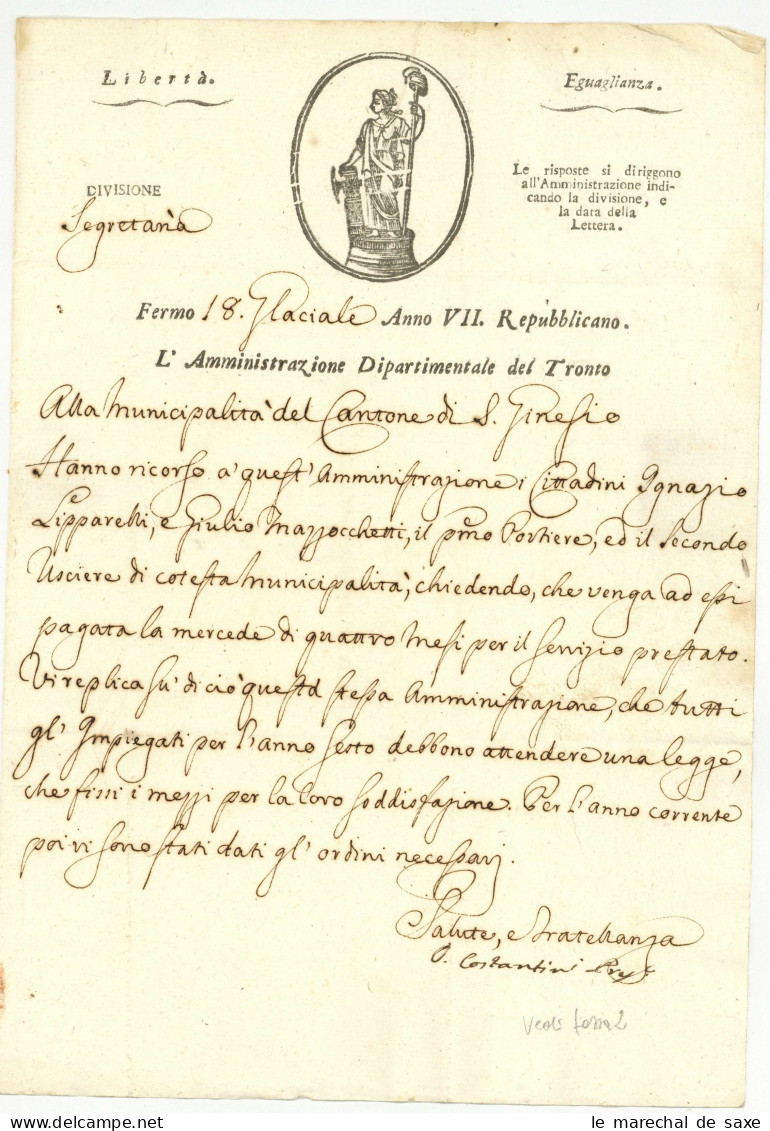 Libertà.
Eguaglianza.
Le risposte si diriggono
all'Amministrazione indi-
cando la divisione, e
la data della
Lettera.
DIVISIONE
Segretaria
Fermo 18. Glaciale Anno VII. Repubblicano.
L' Amministrazione Dipartimentale del Tronto
Alla Municipalità del Cantone di S. Ginesio
Hanno ricorso a quest'Amministrazione i Cittadini Ignazio
Lipparelli, e Giulio Mazzocchetti, il pmo Portiere, ed il secondo
Usciere di cotesta Municipalità, chiedendo, che venga ad essi
pagata la mercede di quattro mesi per il servizio prestato.
Vi replica su' di ciò questa stessa Amministrazione, che tutti
gl' Impiegati per l'anno sesto debbono attendere una legge,
che fissi i mezzi per la loro soddisfazione. Per l'anno corrente
poi vi sono stati dati gl' ordini necessarj.
Salute, e Fratellanza
Costantini Pres
Vedi
le marechal de saxe